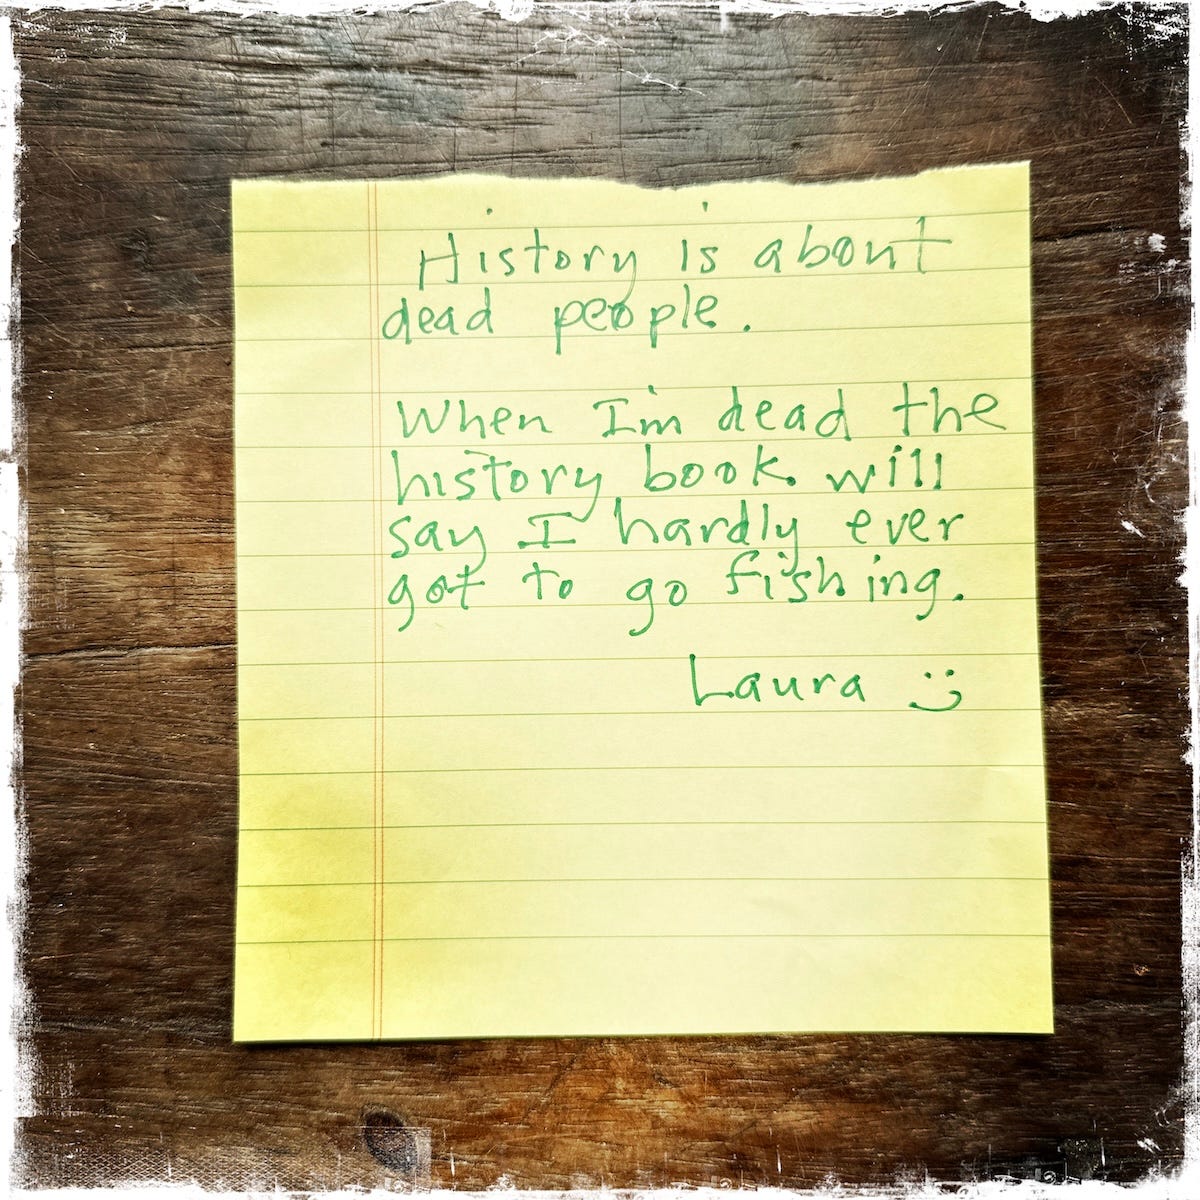 History is about
dead people.
When I'm dead the
history book will
say I hardly ever
got to go fishing.
Laura :)